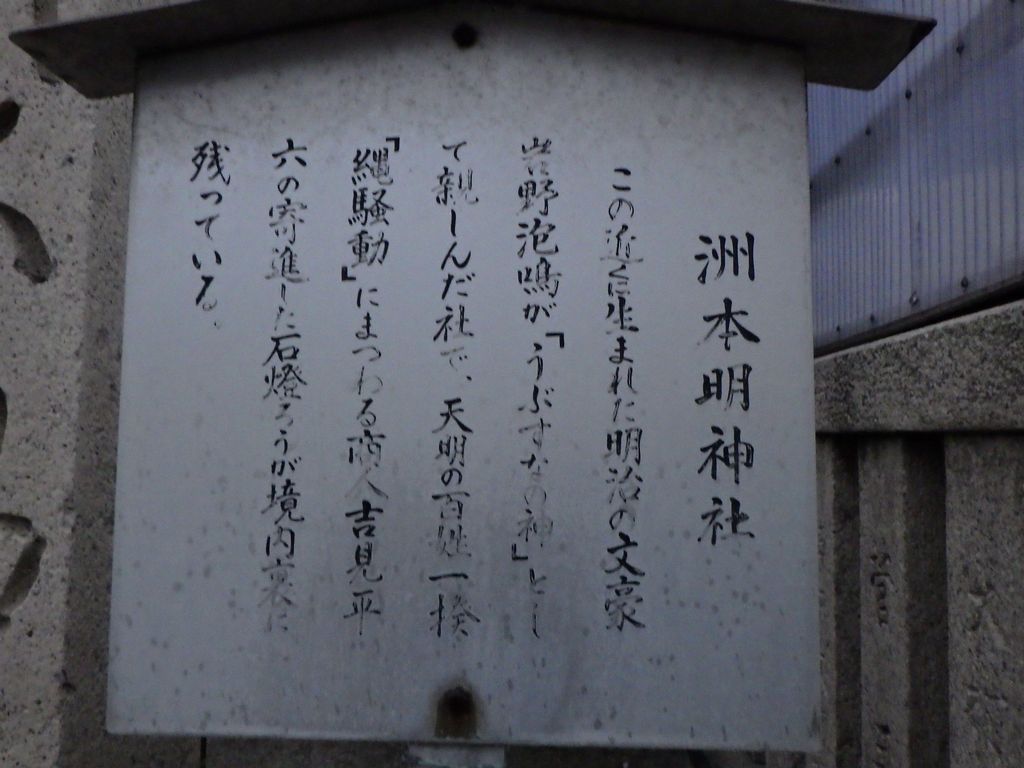 洲本明神社
この近くに生まれた明治の文豪
岩野泡鳴が「うぶすなの神」とし
て親しんだ社で、天明の百姓一揆
「縄騒動」にまつわる商人吉見平
六の寄進した石燈ろうが境内裏に
残っている。